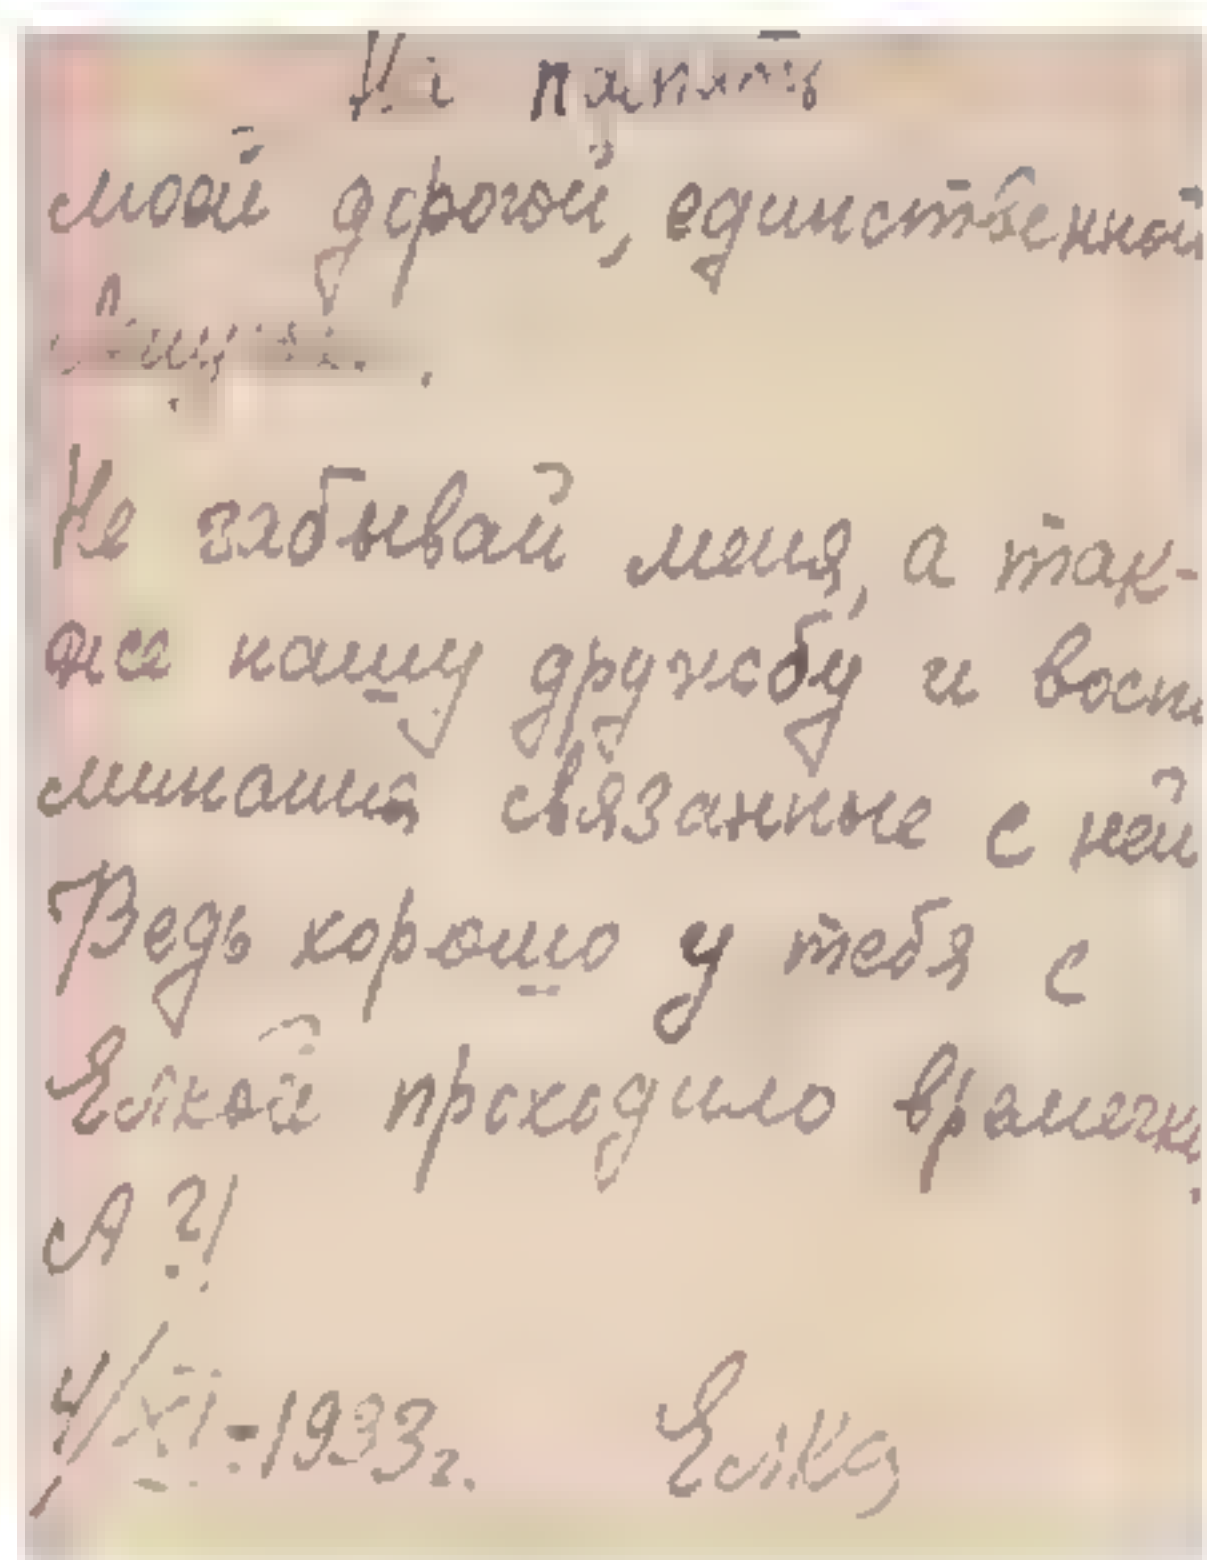 На память
моей дорогой, единственной
Не забывай меня, а так-
же нашу дружбу и воспо
минания связанные с ней
Ведь хорошо у тебя с
Елкой проходило времечко
А?!
4/XI-1933г. Елка